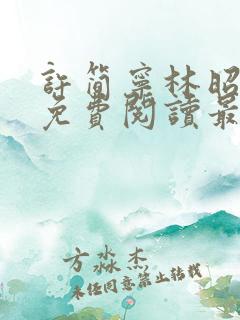 許簡寧林昭
免費閱讀最
方淼杰
未任同意禁止转载